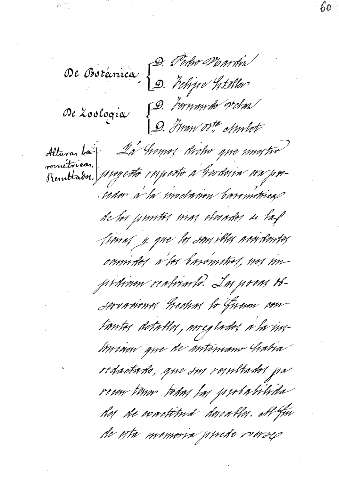 60
De Botánica { D. Pedro Martin
D. Felipe Esteller
De Zoología { D. Fernando Velaz
D. Juan Bta.
Alturas ba-
rometricas.
Resultados.
Ya hemos dicho que nuestro
proyecto respecto á Geodesia era pro-
ceder á la nivelacion barométrica
de los puntos mas elevados de las
Sierras y que los sensibles accidentes
ocurridos á los barómetros, nos im-
pidieron realizarlo. Las pocas ob-
servaciones hechas lo fueron con
tantos detalles, arreglados á la ins-
truccion que de antemano habia
redactado, que sus resultados pa-
recen tener todas las probabilida
des de exactitud deseables. Al fin
de esta memoria puede verse